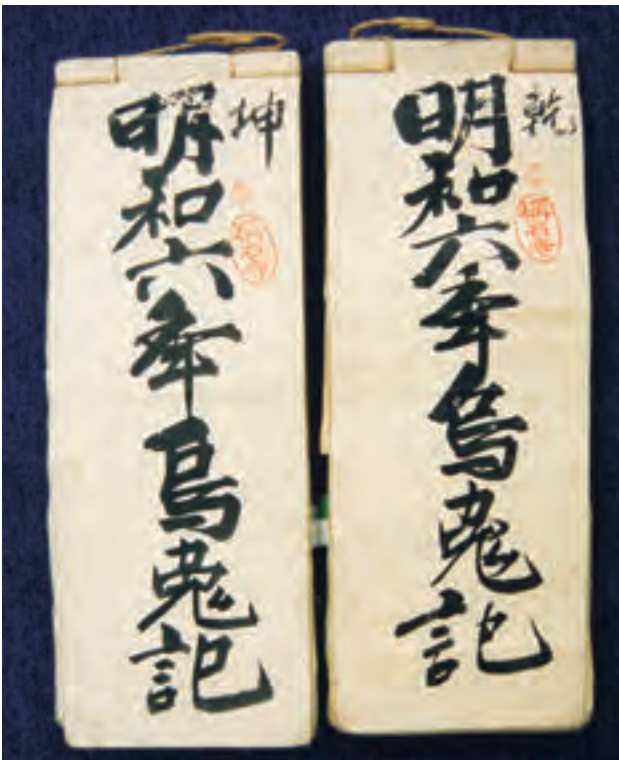 乾
明和六年烏兎記
坤
明和六年烏兎記